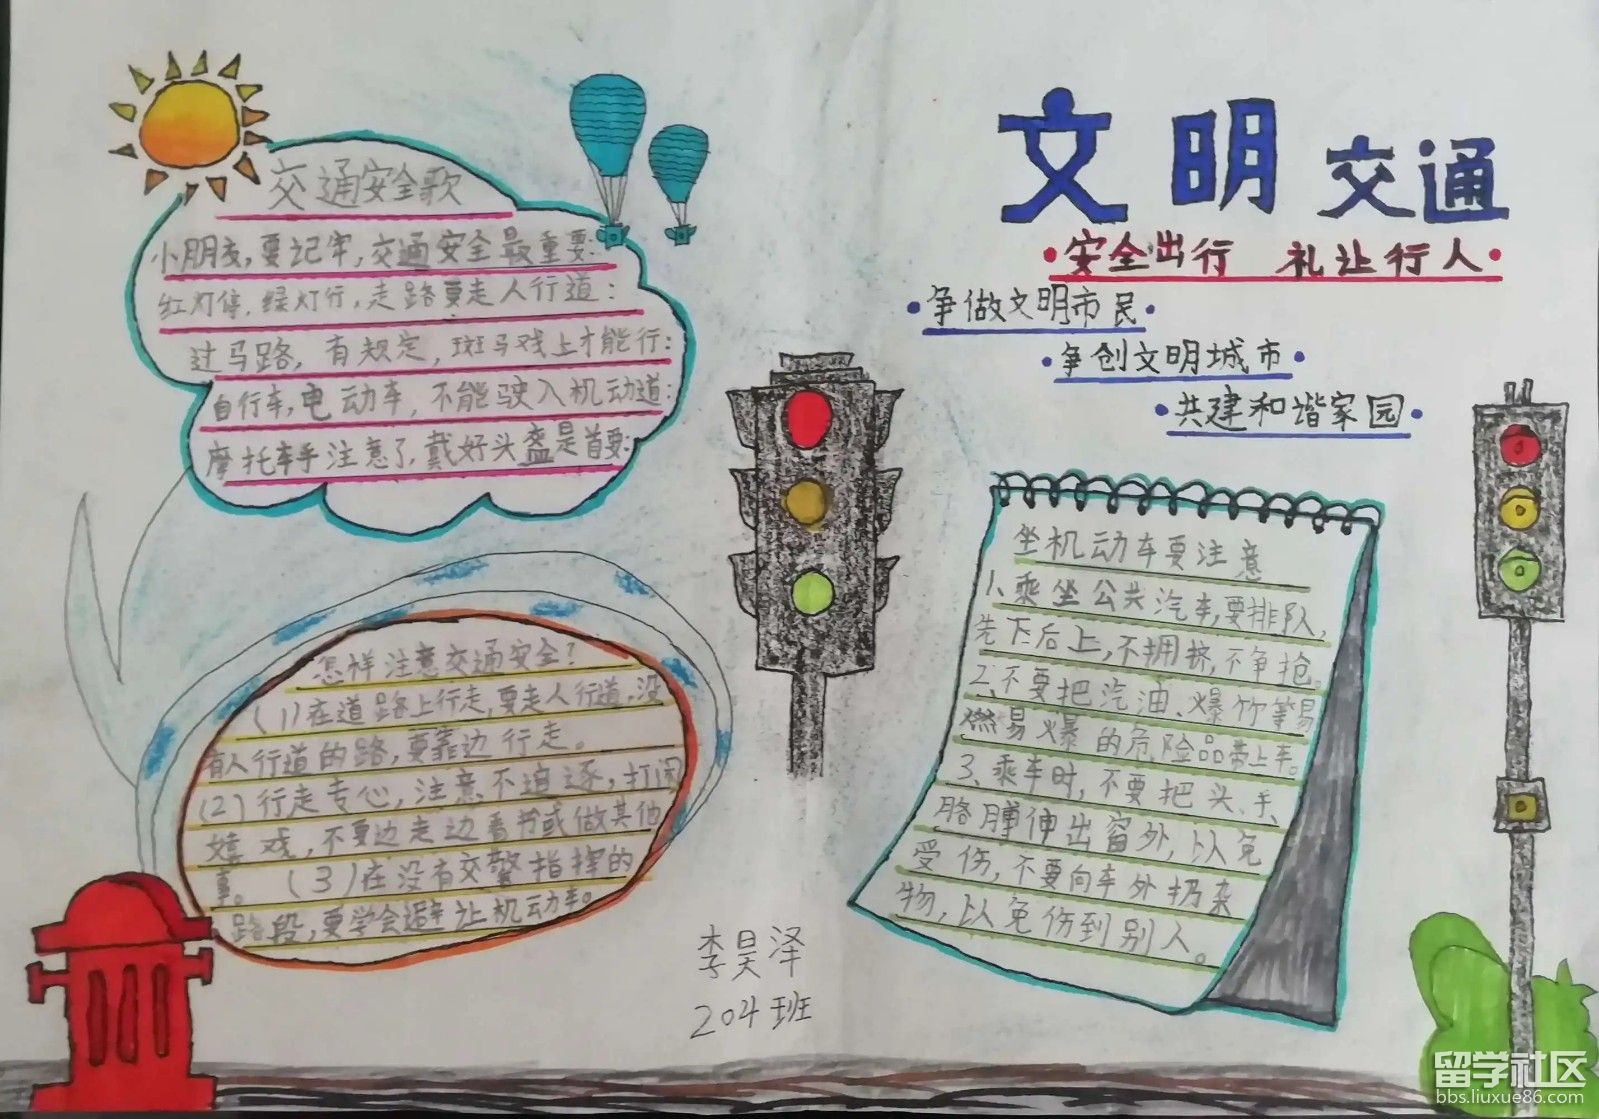 交通安全歌
小朋友,要记牢,交通安全最重要:
红灯停,绿灯行,走路要走人行道:
过马路,有规定,斑马戏上才能行:
自行车,电动车,不能驶入机动道:
摩托车手注意了,戴好头盔是首要:
文明交通
安全出行 礼让行人
争做文明市民
争创文明城市
共建和谐家园
怎样注意交通安全?
(1)在道路上行走,要走人行道,没
有人行道的路,要靠边行走。
(2)行走专心,注意不追逐,打闹
嬉戏,不要边走边看书或做其他
事。(3)在没有交警指挥的
路段,要学会避让机动车。
坐机动车要注意
1、乘坐公共汽车,要排队,
先下后上,不拥挤,不争抢。
2、不要把汽油、爆竹等易
燃易爆的危险品带上车。
3、乘车时,不要把头、手、
胳膊伸出窗外,以免
受伤,不要向车外扔杂
物,以免伤到别人。
李昊泽
204班
留学社区
bbs.liuxue86.com